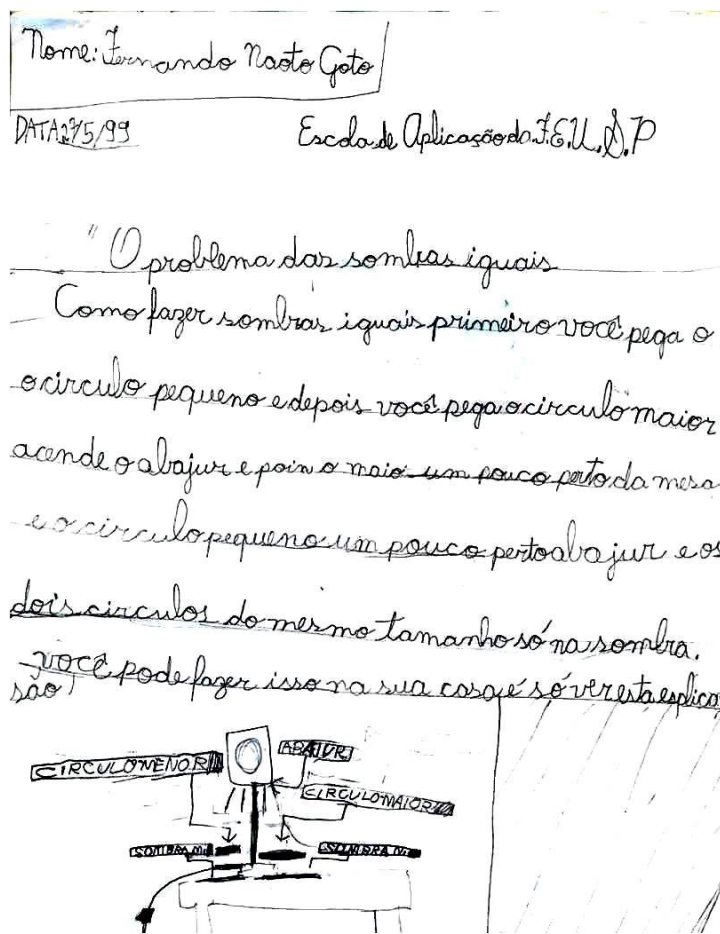 Nome: Fernando Naoto Goto
DATA 27/5/99
Escola de Aplicação da F.E.U.S.P
"O problema das sombras iguais
Como fazer sombras iguais primeiro você pega o
o circulo pequeno e depois você pega o circulo maior
acende o abajur e poin o maio um pouco perto da mesa
e o circulo pequeno um pouco perto abajur e os
dois circulos do mesmo tamanho só na sombra.
você pode fazer isso na sua casa é só ver esta esplica
são!
CIRCULO MENOR
ABAJUR
CIRCULO MAIOR
SOMBRA
SOMBRA